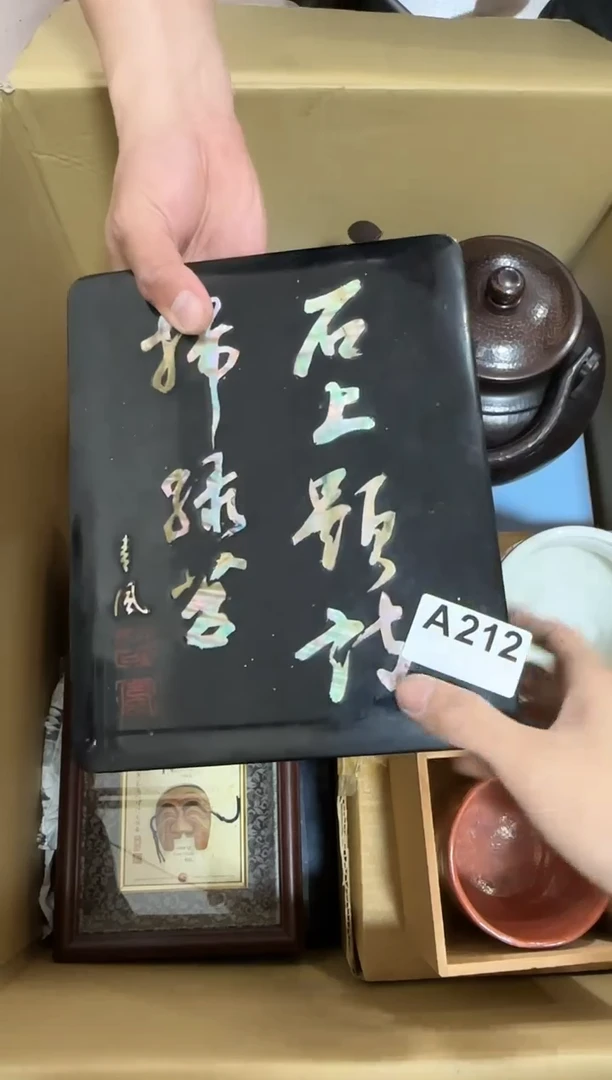 石上題詩
掃緑苔
青風
A212